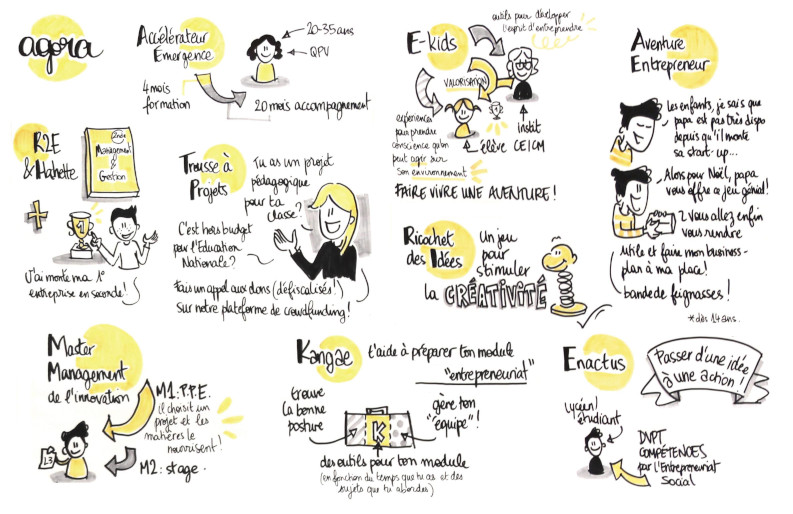 agora
Accélérateur
Émergence
20-35 ans
QPV
4 mois
formation
20 mois accompagnement
E-kids
outils pour développer
l'esprit d'entreprendre
VALORISATION
expériences
pour prendre
conscience qu'on
peut agir sur
son environnement
élève
Instit
CE/CM
FAIRE VIVRE UNE AVENTURE !
Aventure
Entrepreneur
Les enfants, je sais que
papa est pas très dispo
depuis qu'il monte
sa start-up...
Alors pour Noël, papa
vous offre a jeu génial !
2 vous allez enfin
vous rendre
utile et faire mon business-
plan à ma place !
bande de feignasses !
*dès 14 ans.
R2E
& Hachette
2nde
Management
&
Gestion
+
1
J'ai monté ma 1e
entreprise en seconde !
Trousse à
Projets
Tu as un projet
pédagogique
pour ta
classe ?
C'est hors budget
pour l'Éducation
Nationale ?
Fais un appel aux dons (défiscalisés !)
sur notre plateforme de crowdfunding !
Ricochet
des Idées
Un jeu
pour
stimuler
la CRÉATIVITÉ
Master
Management
de l'innovation
M1: P.P.E.
il choisit un
projet et les
matières le
nourrissent !
L3
M2: stage.
Kangae
t'aide à préparer ton module
"entrepreneuriat"
trouve
la bonne
posture
K
gère ton
"équipe" !
des outils pour ton module
(en fonction du temps que tu as et des
sujets que tu abordes)
Enactus
Passer d'une idée
à une action !
lycéen/
étudiant
DVPT
COMPÉTENCES
par l'Entrepreneuriat
Social